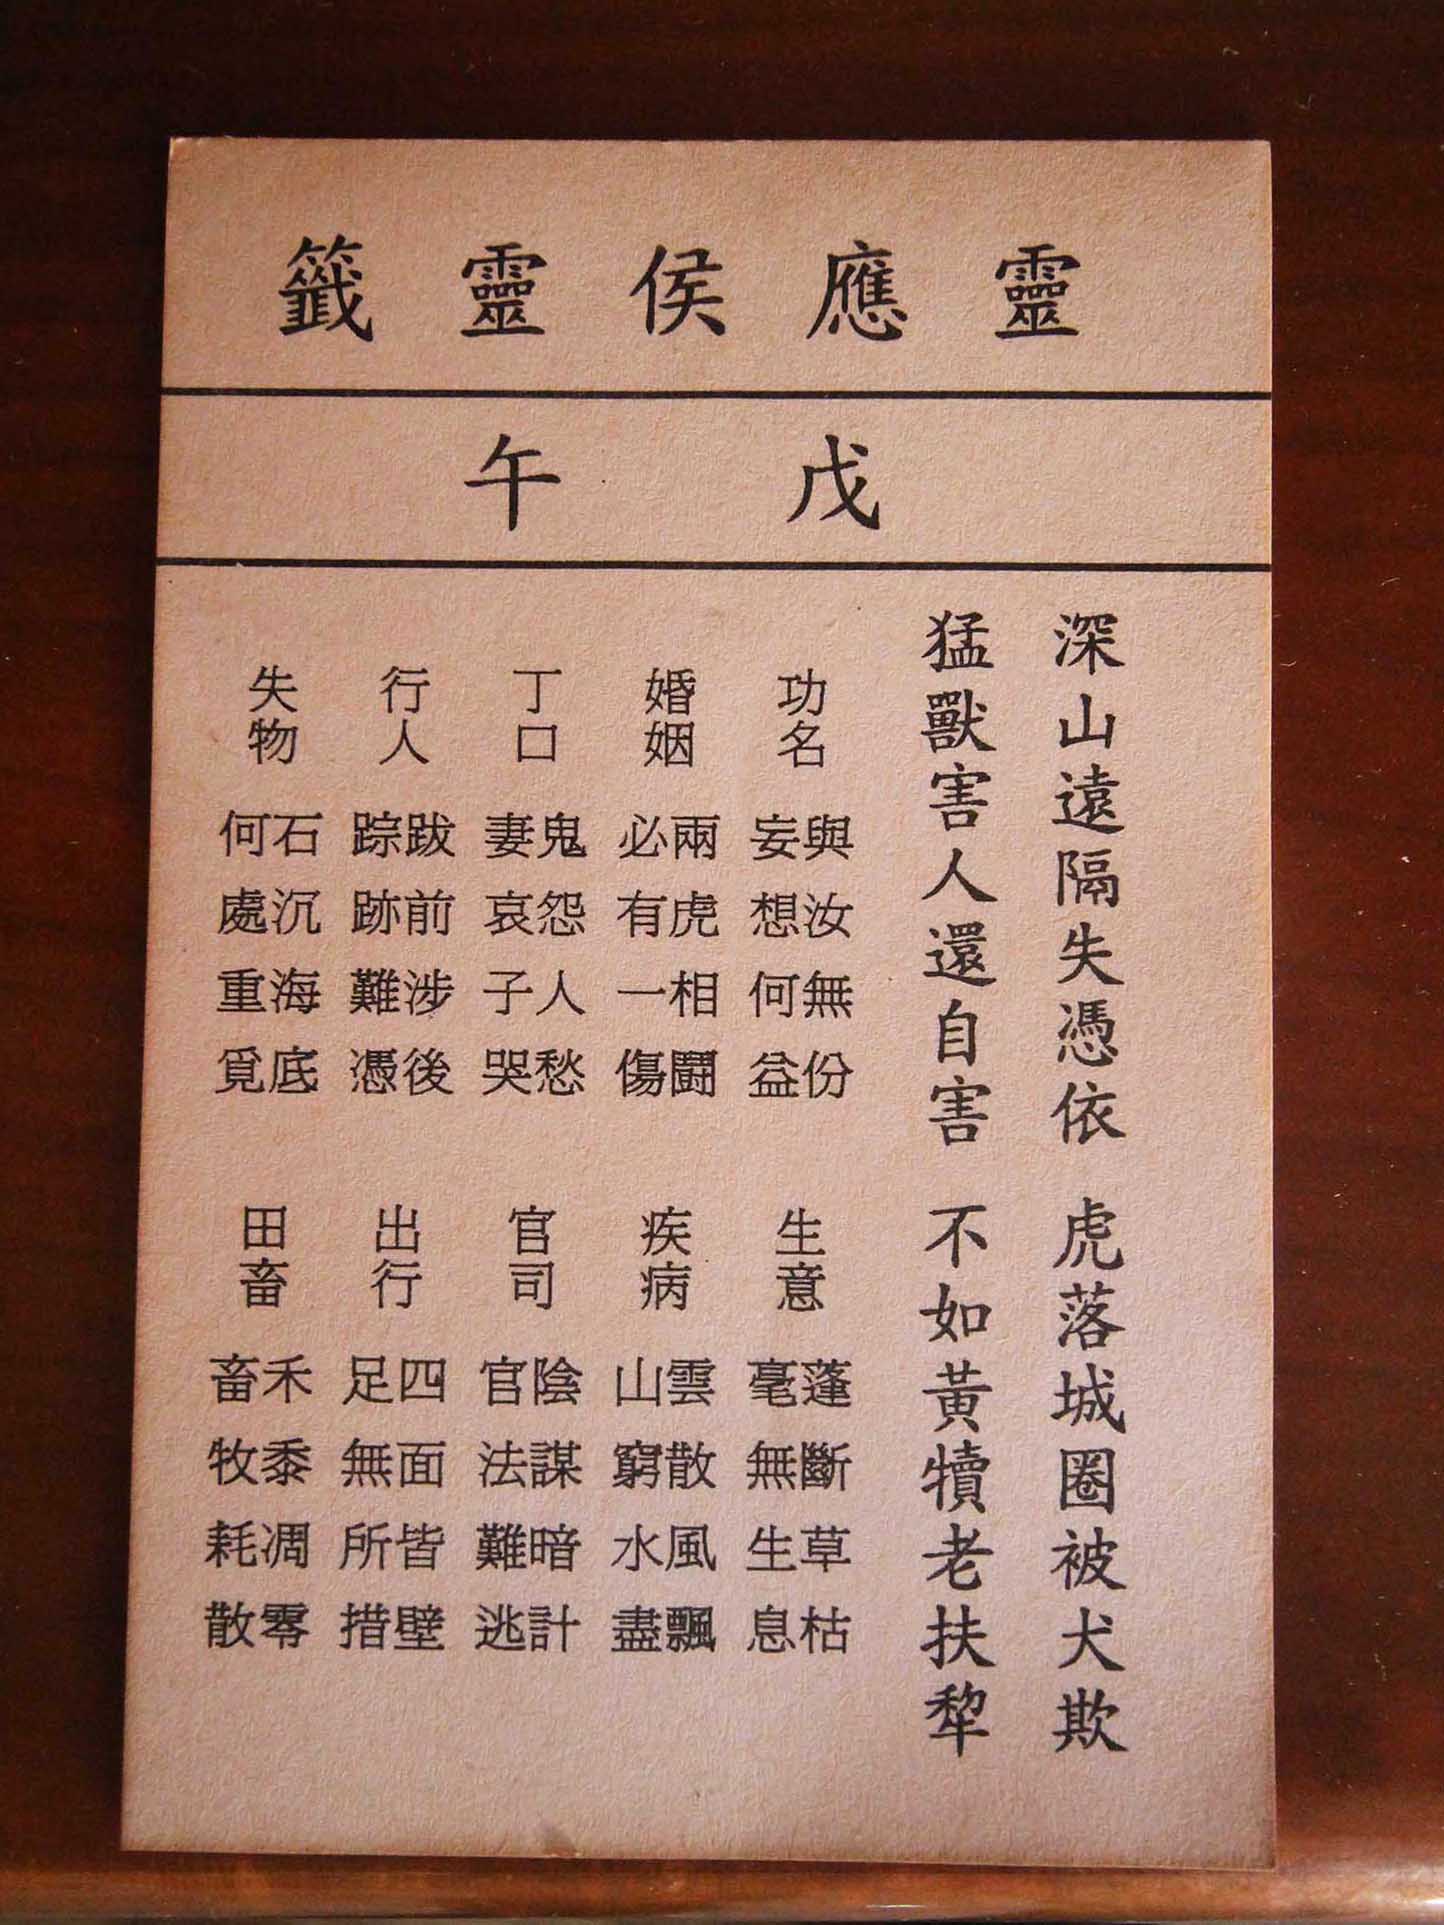 靈應侯靈籤
戊午
深山遠隔失憑依 虎落城圈被犬欺
猛獸害人還自害 不如黃犢老扶犂
功名 與汝無份 妄想何益
生意 蓬斷草枯 毫無生息
婚姻 兩虎相鬪 必有一傷
疾病 雲散風飄 山窮水盡
丁口 鬼怨人愁 妻哀子哭
官司 陰謀暗計 官法難逃
行人 跋前涉後 踪跡難憑
出行 四面皆壁 足無所措
失物 石沉海底 何處重覓
田畜 禾黍凋零 畜牧耗散